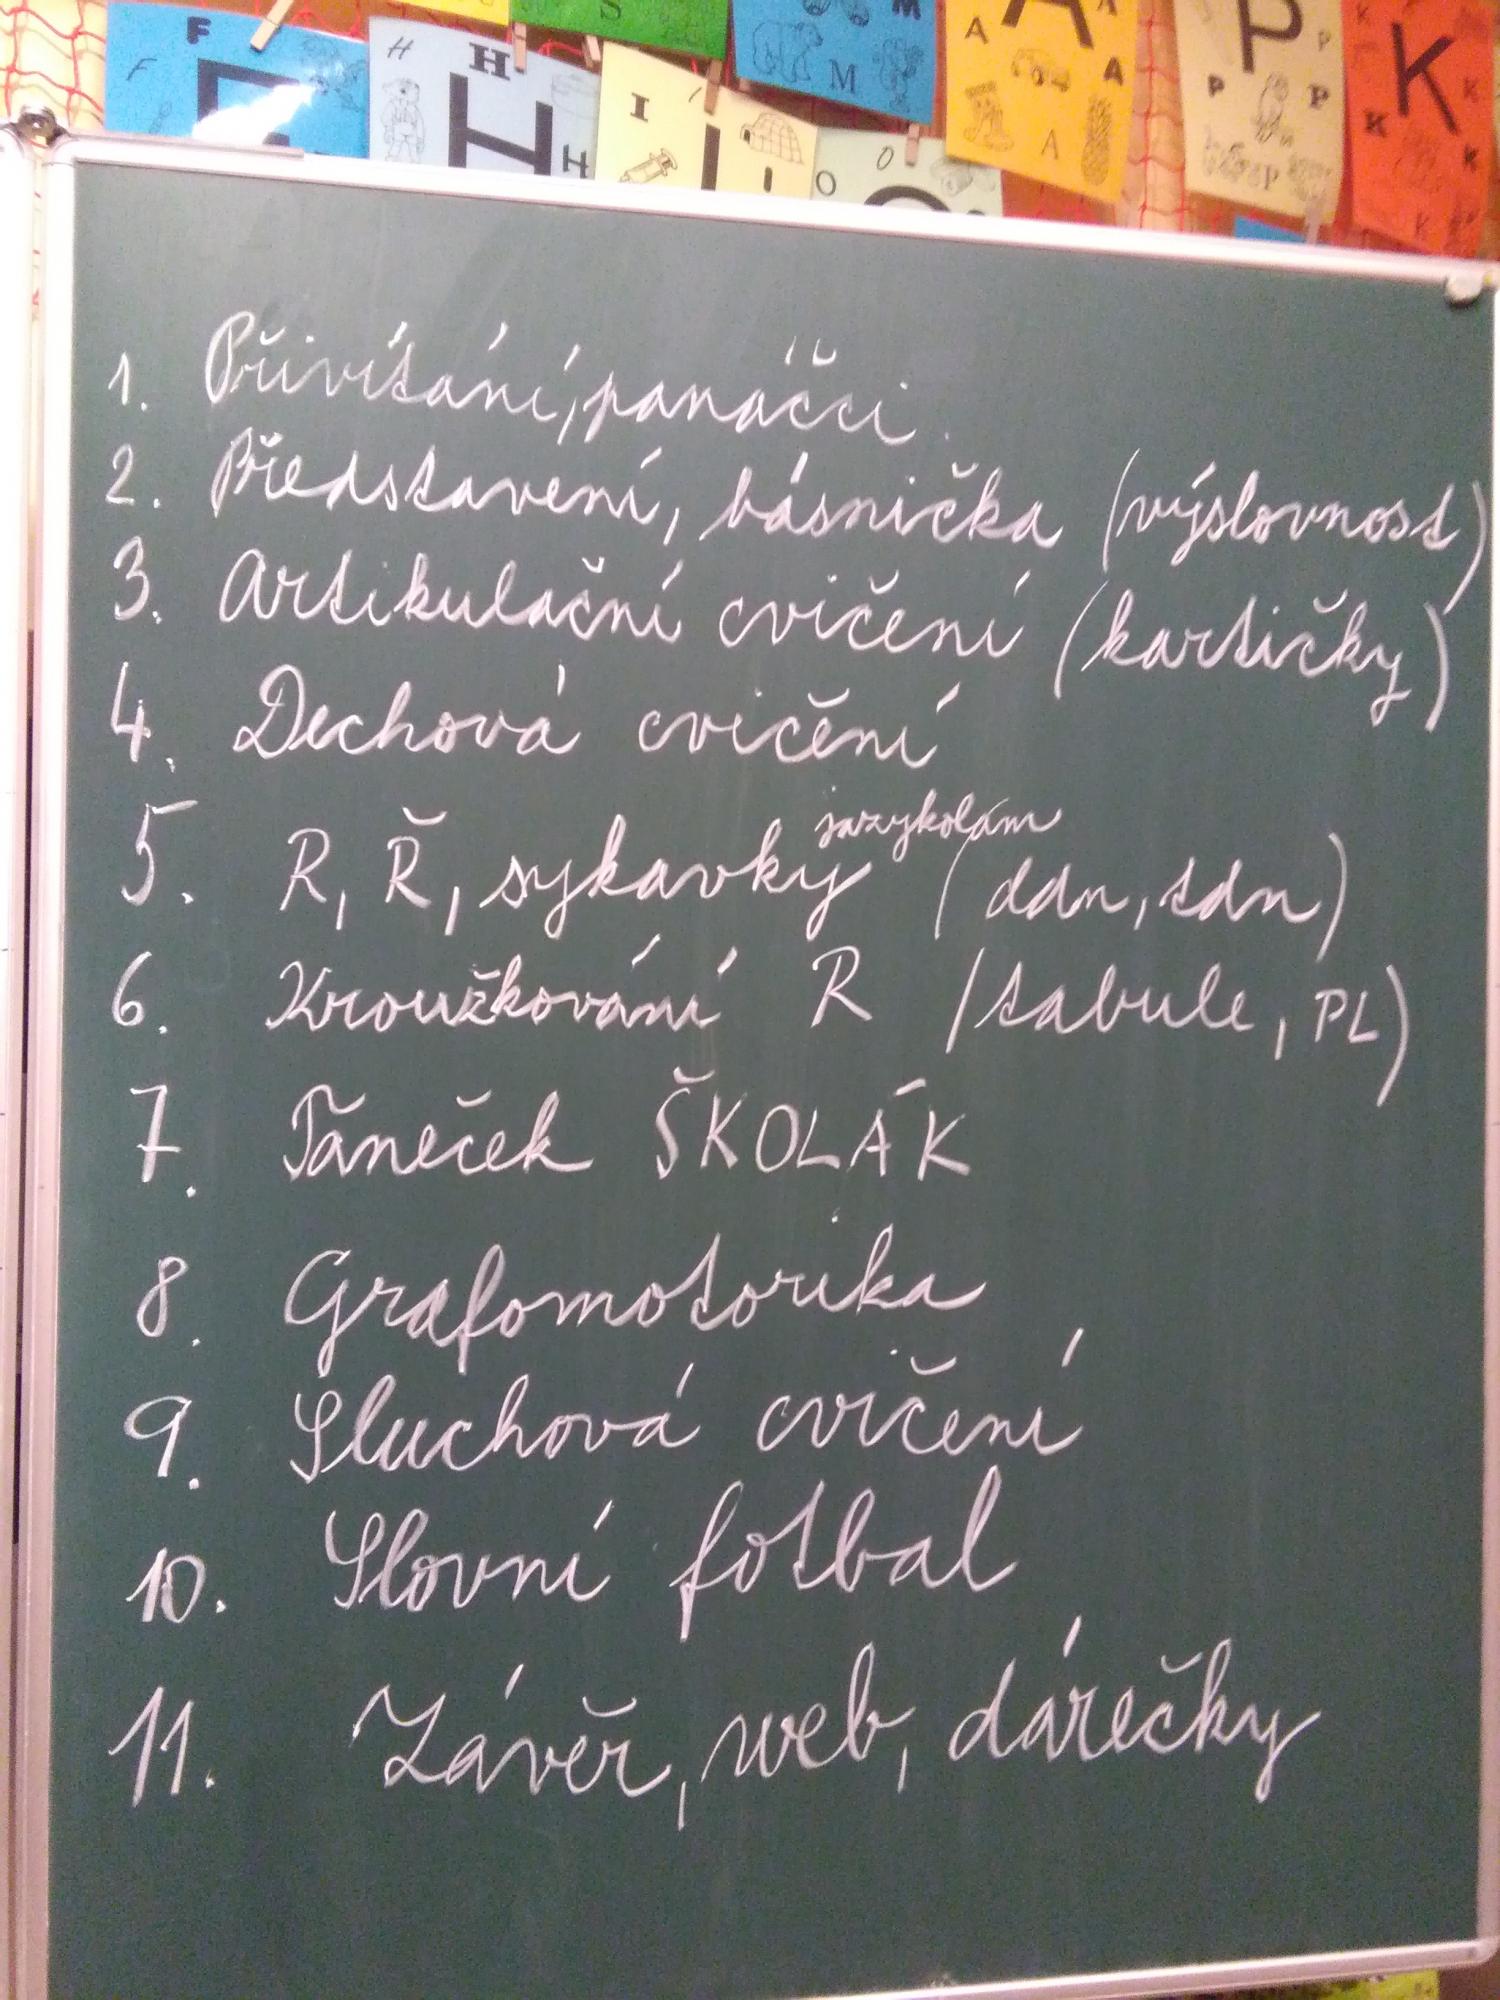 F
F
H
H
H
H
I
I
S
M
M
O
O
A
A
A
A
P
P
P
P
P
K
K
K
K
K
K
1. Přivítání, panáčci
2. Představení, básnička (výslovnost)
3. Artikulační cvičení (kartičky)
4. Dechová cvičění
jazykolam
5. R, Ř, sykavky (ddn, tdn)
6. Kroužkování R (tabule, PL)
7. Taneček ŠKOLÁK
8. Grafomotorika
9. Sluchová cvičení
10. Slovní fotbal
11. Závěr, web, dárečky